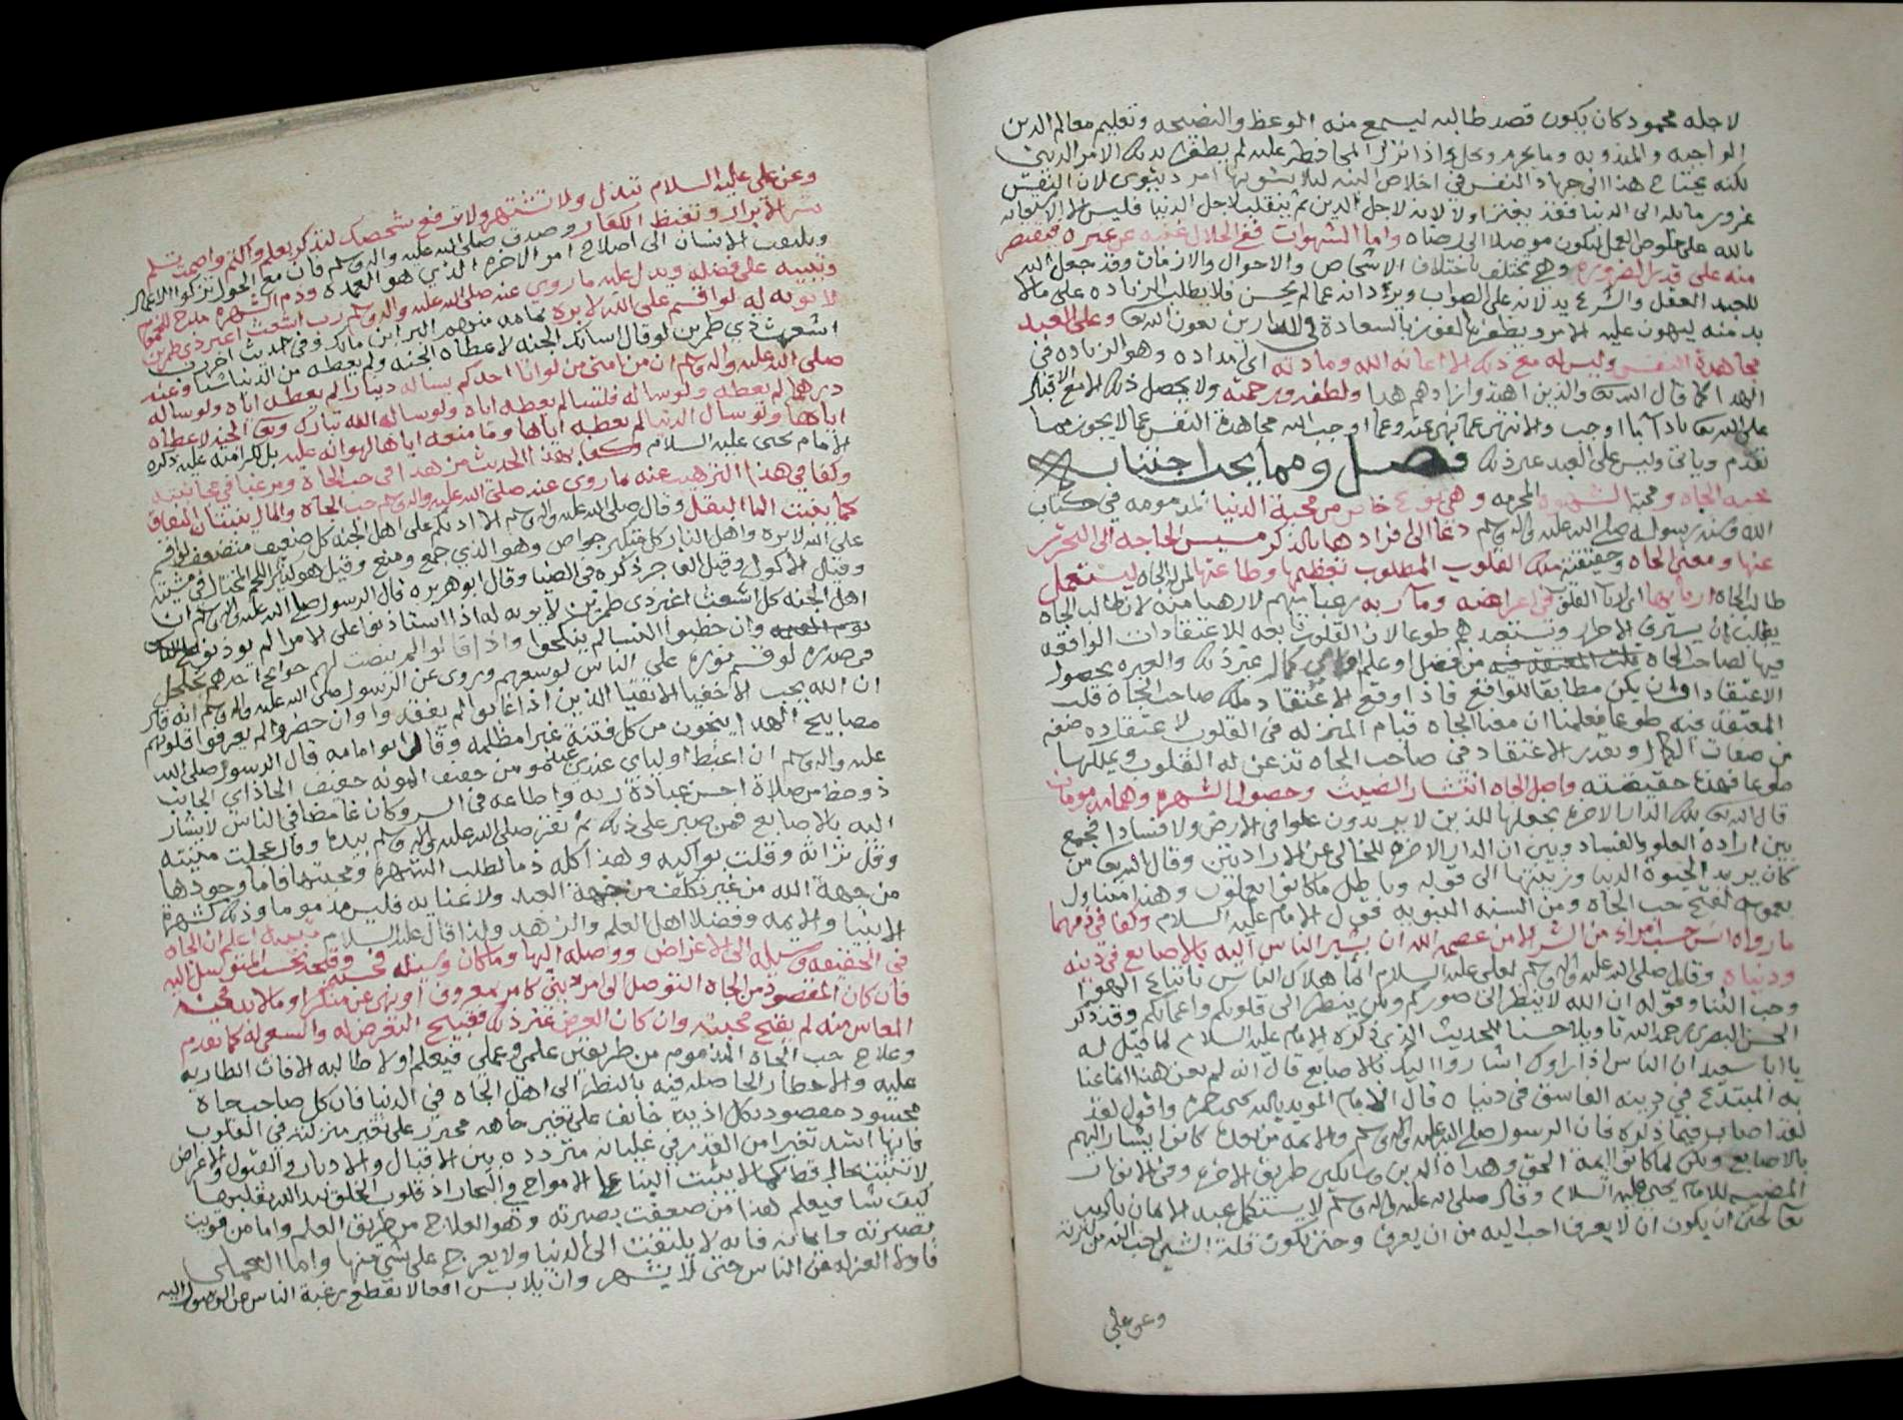 لاجله محمود كان يكون قصد طالبه ليسمع منه الوعظ والنصيحه وتعليم معالم الدين
الواجبه والمندوبه وما يحرم ويحل واذا نزل المحافظه عليه لم يظفر بذلك الامر الديني
لكنه يحتاج هذا الى جهاد النفس في اخلاص النيه ليلا يشوبها امر دنيوي لان النفس
غرور مايله الى الدنيا فقد يغتر اولا لانه لاجل الدين ثم ينقلب لاجل الدنيا فليس الا الاستعانه
بالله على خلوص العمل ليكون موصلا الى رضاه واما الشهوات ففي الحلال غنيه عن غيره فيقتصر
منه على قدر الضروره وهي تختلف باختلاف الاشخاص والاحوال والازمان وقد جعل الله
للعبد العقل والشرع يدلانه على الصواب ويردانه عما لم يحسن فلا يطلب الزياده على ما لا
بد منه ليهون عليه الامر ويظفر بالفوز بالسعادة في الدارين بعون الله تعالى وعلى العبد
مجاهدة النفس وليس له مع ذلك الا اعانه الله ومادته اي امداده وهو الزياده في
الهدا كما قال الله تعالى والذين اهتدوا زادهم هدا ولطفه ورحمته ولا يحصل ذلك الا مع الاقبال
على الله تعالى بادآ ما اوجب والانتهى عما نهى عنه ومما اوجب الله مجاهدة النفس عما لا يجوز مما
تقدم وياتي وليس على العبد غير ذلك فصل ومما يجب اجتنابه
محبه الجاه ومحبة الشهوه المحرمه وهي نوع خاص من محبة الدنيا المذمومه في كتاب
الله وسنه رسوله صلى الله عليه واله وسلم دعا الى افرادها بالذكر مسيس الحاجه الى التحرز
عنها ومعنى الجاه وحقيقته ملك القلوب المطلوب تعظيمها وطاعتها لمن له الجاه ليستعمل
طالب الجاه اربابها اي ارباب القلوب في اغراضه ومآربه رغبا منهم لا رهبا منه لان طالب الجاه
يطلب ان يسترق الاحرار ويستعبدهم طوعا لان القلوب تابعه للاعتقادات الواقعه
فيها لصاحب الجاه من فضل او علم او اي كمال غير ذلك والعبره بحصول
الاعتقاد وان لم يكن مطابقا للواقع فاذا وقع الاعتقاد ملك صاحب الجاه قلب
المعتقد فيه طوعا فعلمنا ان معنا الجاه قيام المنزله في القلوب لاعتقاده صفه
من صفات الكمال وبقدر الاعتقاد في صاحب الجاه تذعن له القلوب ويملكها
طوعا فهذه حقيقته واصل الجاه انتشار الصيت وحصول الشهره وهما مذمومان
قال الله تعالى تلك الدار الاخرة نجعلها للذين لا يريدون علوا في الارض ولا فسادا فجمع
بين اراده العلو والفساد وبين ان الدار الاخره للخالي عن الارادتين وقال الله تعالى من
كان يريد الحيوة الدنيا وزينتها الى قوله وباطل ما كانوا يعملون وهذا متناول
بعمومه لقبح حب الجاه ومن السنه النبويه فقول الامام عليه السلام وكفا في ذمهما
ما رواه انس حسب امراء من الشر الا من عصمه الله ان يشير الناس اليه بالاصابع في دينه
ودنياه وقال صلى الله عليه واله وسلم لعلي عليه السلام انما هلاك الناس باتباع الهوى
وحب الثنا وقوله ان الله لا ينظر الى صوركم ولكن ينظر الى قلوبكم واعمالكم وقد ذكر
الحسن البصري رحمه الله تاويلا حسنا للحديث الذي ذكره الامام عليه السلام لما قيل له
يا ابا سعيد ان الناس اذا راوك اشاروا اليك بالاصابع قال انه لم يعن هذا انما عنا
به المبتدع في دينه الفاسق في دنياه قال الامام المويد بالله يحيى بن حمزه واقول لقد
لقد اصاب فيما ذكره فان الرسول صلى الله عليه واله وسلم والايمه من بعده كانوا يشار اليهم
بالاصابع ولكن لما كانوا ايمة الحق وهداه الدين وسالكي طريق الاخره وفي الانوار
المضييه للامام يحيى عليه السلام وقال صلى الله عليه واله وسلم لا يستكمل عبد الايمان بالله
تعالى حتى ان يكون ان لا يعرف احب اليه من ان يعرف وحتى تكون قلة الشي احب اليه من كثرته
وعن علي
وعن علي عليه السلام تبذل ولا تشتهر ولا ترفع شخصك لتذكر بعلم واكتم واصمت تسلم
تسر الابرار وتغيظ الكفار وصدق صلى الله عليه واله وسلم فان مع الخمول تزكوا الاعمال
ويلتفت الانسان الى اصلاح امر الاخره الذي هو العمده وذم الشهره مدح للخمول
وتنبيه على فضله ويدل عليه ما روي عنه صلى الله عليه واله وسلم رب اشعث اغبر ذي طمرين
لا يوبه له لو اقسم على الله لابره مما منهم البرا ابن مالك وفي حديث اخر رب
اشعث ذي طمرين لو قال اسالك الجنه لاعطاه الجنه ولم يعطه من الدنيا شيا وعنه
صلى الله عليه واله وسلم ان من امتي من لو اتا احدكم يساله دينارا لم يعطه اياه ولو ساله
درهما لم يعطه ولو ساله فلسا لم يعطه اياه ولو سال الله تبارك وتعالى الجنه لاعطاه
اياها ولو سال الدنيا لم يعطه اياها وما منعه اياها لهوانه عليه بل لكرامته عليه ذكره
الامام يحيى عليه السلام وكفا بهذا الحديث مزهدا في حب الجاه ومرغبا في مجانبته
وكفا في هذا الترهيب عنه ما روي عنه صلى الله عليه واله وسلم حب الجاه والمال ينبتان النفاق
كما ينبت الما البقل وقال صلى الله عليه واله وسلم الا ادلكم على اهل الجنه كل ضعيف متضعف لو اقسم
على الله لابره واهل النار كل متكبر جواض وهو الذي جمع ومنع وقيل هو كثير اللحم المختال في مشيته
وقيل الاكول وقيل الفاجر ذكره في الضيا وقال ابو هريره قال الرسول صلى الله عليه واله وسلم ان
اهل الجنه كل اشعث اغبر ذي طمرين لا يوبه له اذا استاذنوا على الامرا لم يوذن لهم
وان خطبوا النسا لم ينكحوا واذا قالوا لم ينصت لهم حوايج احدهم تتجلجل
في صدره لو قسم نوره على الناس لوسعهم وروي عن الرسول صلى الله عليه واله وسلم انه قال
ان الله يحب الاخفيا الاتقيا الذين اذا غابوا لم يفقدوا وان حضروا لم يعرفوا قلوبهم
مصابيح الهدا ينجون من كل فتنة غبرا مظلمه وقال ابو امامه قال الرسول صلى الله
عليه واله وسلم ان اغبط اولياي عندي مومن خفيف المونه خفيف الحاذ اي الجانب
ذو حظ من صلاة احسن عبادة ربه واطاعه في السر وكان غامضا في الناس لا يشار
اليه بالاصابع فمن صبر على ذلك ثم نقر صلى الله عليه واله وسلم بيده وقال عجلت منيته
وقل تراثه وقلت بواكيه وهذا كله ذما لطلب الشهره ومحبتها فاما وجودها
من جهة الله من غير تكلف من جهة العبد ولا عنايه فليس مذموما وذلك كشهرة
الانبيا والايمه وفضلا اهل العلم والزهد ولذا قال عليه السلام تنبيه اعلم ان الجاه
في الحقيقه وسيله الى الاغراض وواصله اليها وما كان وسيله فحسنه وقبحه بحسب المتوسل اليه
فان كان المقصود من الجاه التوصل الى امر ديني كامر بمعروف او نهي عن منكر او ما لا بد منه
المعاش منه لم يقبح محبته وان كان الغرض غير ذلك فقبيح التعرض له والسعي له كما تقدم
وعلاج حب الجاه المذموم من طريقين علمي وعملي فيعلم اولا طالبه الافات الطاريه
عليه والاخطار الحاصله فيه بالنظر الى اهل الجاه في الدنيا فان كل صاحب جاه
محسود مقصود بكل اذيه خايف على تغير جاهه محترز على تغير منزلته في القلوب
فانها اشد تغيرا من القدر في غليانه متردده بين الاقبال والادبار والقبول والاعراض
لا تثبت بحال قط كما لا يثبت البنا على الامواج في البحار اذ قلوب الخلق بيد الله يقلبها
كيف شا فيعلم هذا من ضعفت بصيرته وهو العلاج من طريق العلم واما من قويت
بصيرته وايمانه فانه لا يلتفت الى الدنيا ولا يعرج على شي منها واما العملي
فاولا العزله عن الناس حتى لا يشهر وان يلابس افعالا تقطع رغبة الناس عن الوصول اليه